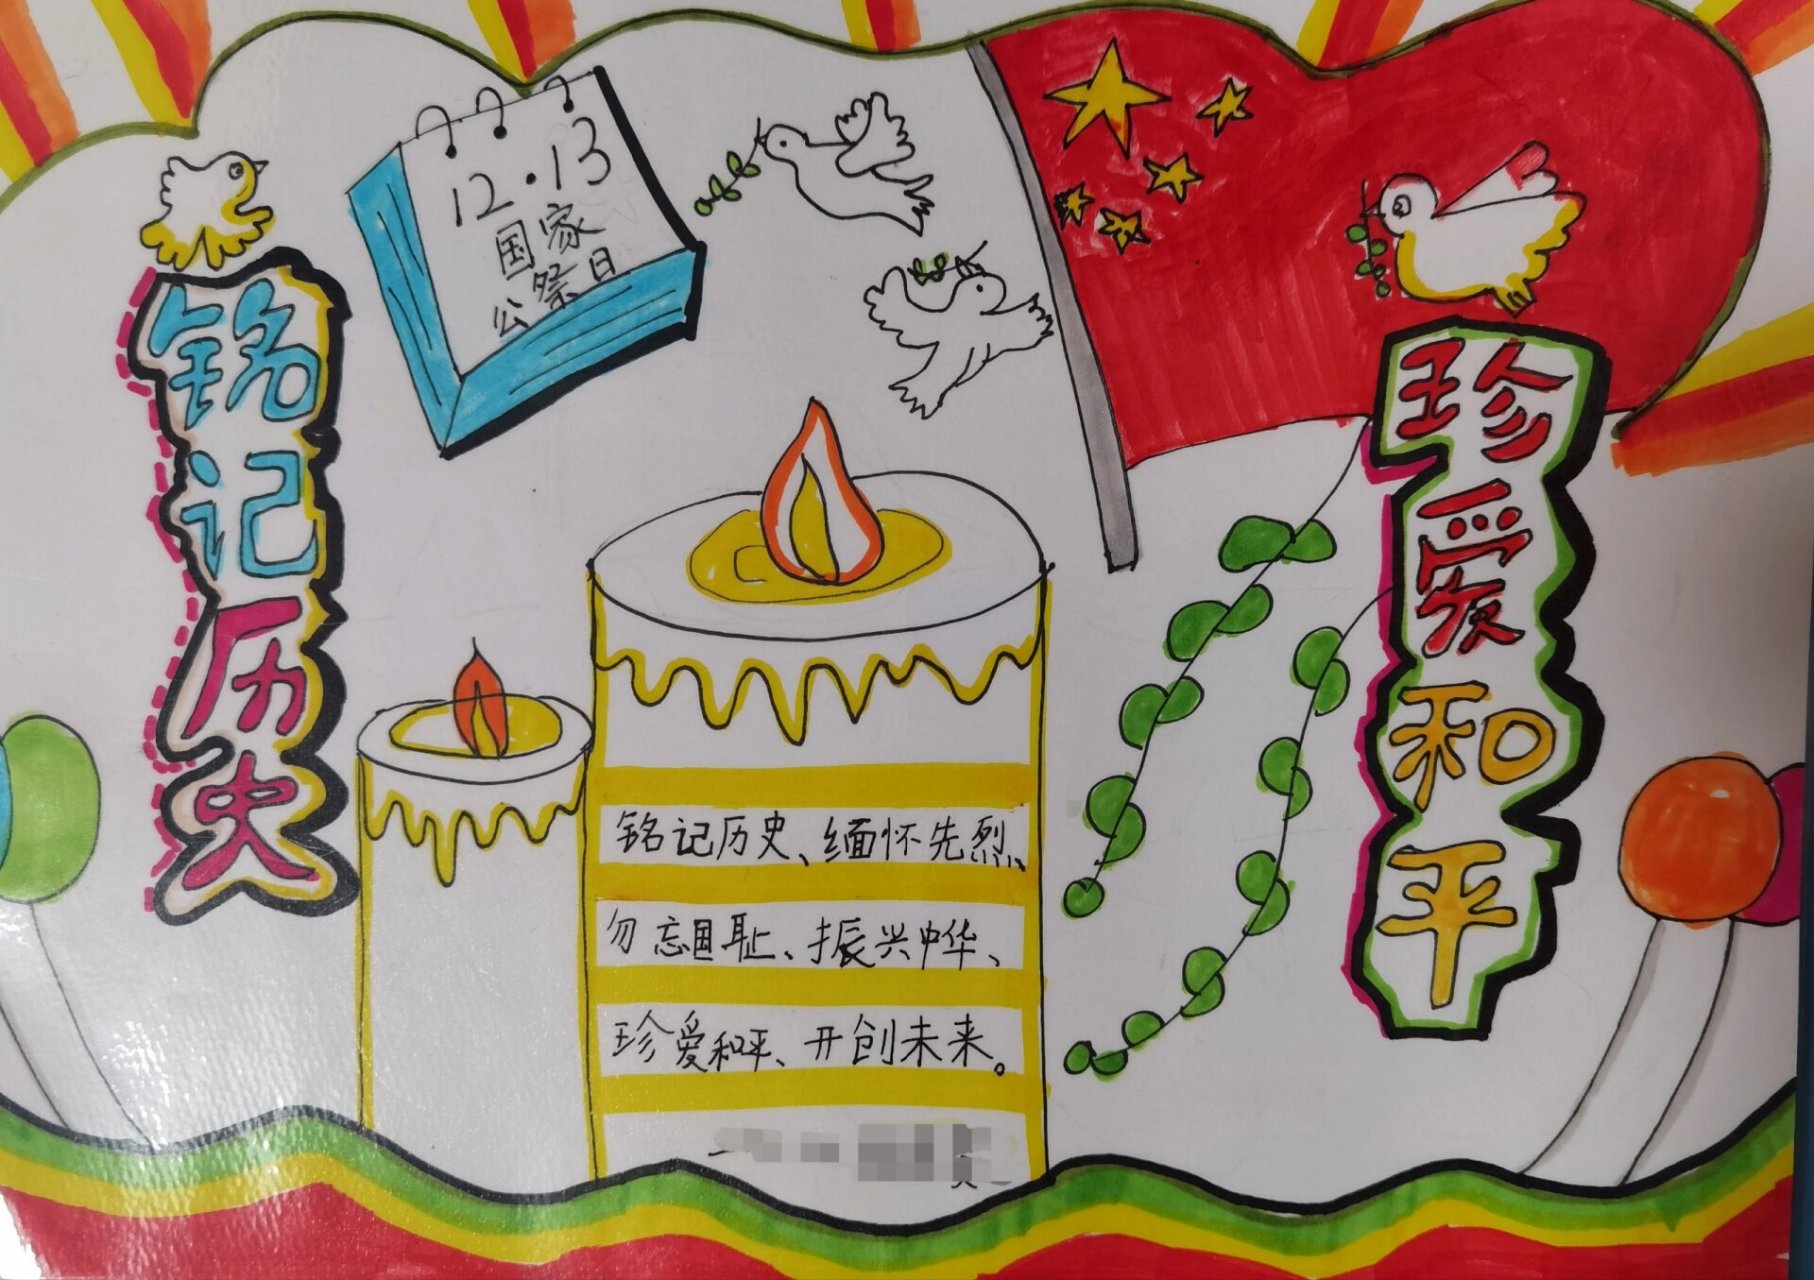 12·13
国家
公祭日
铭记历史
珍爱和平
铭记历史、缅怀先烈、
勿忘国耻、振兴中华、
珍爱和平、开创未来。